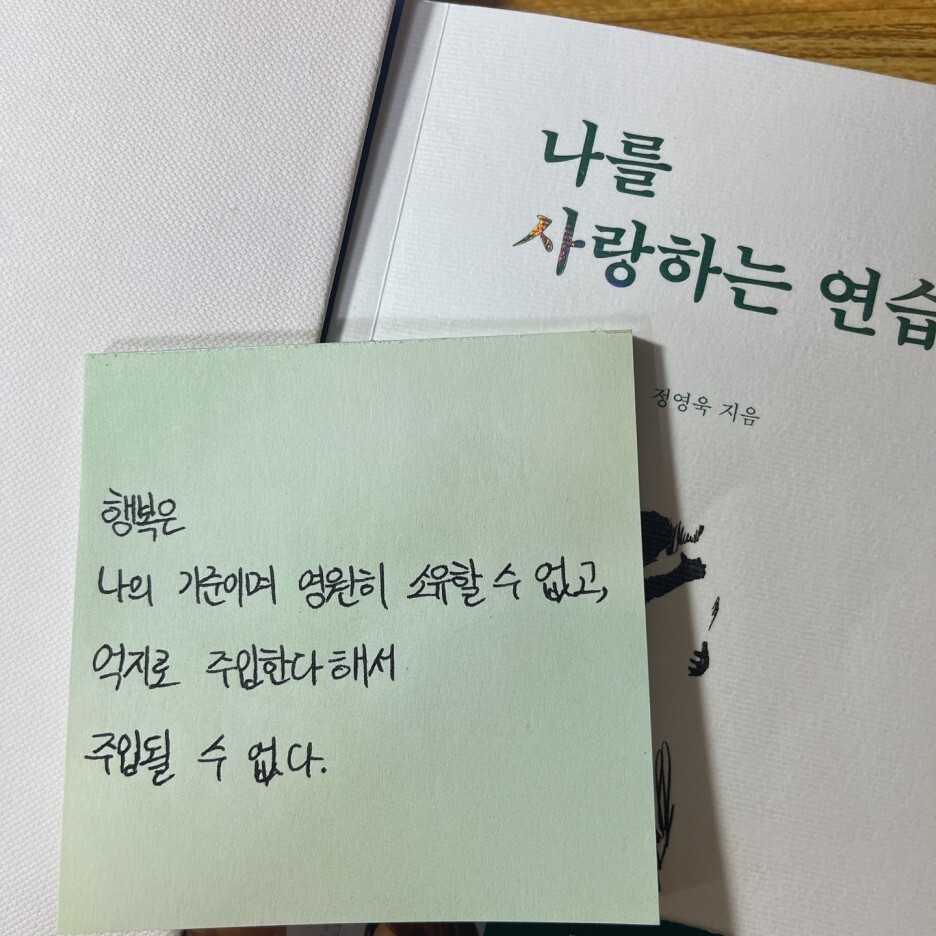 나를
사랑하는 연습
정영욱 지음
행복은
나의 기준이며 영원히 소유할 수 없고,
억지로 주입한다 해서
주입될 수 없다.